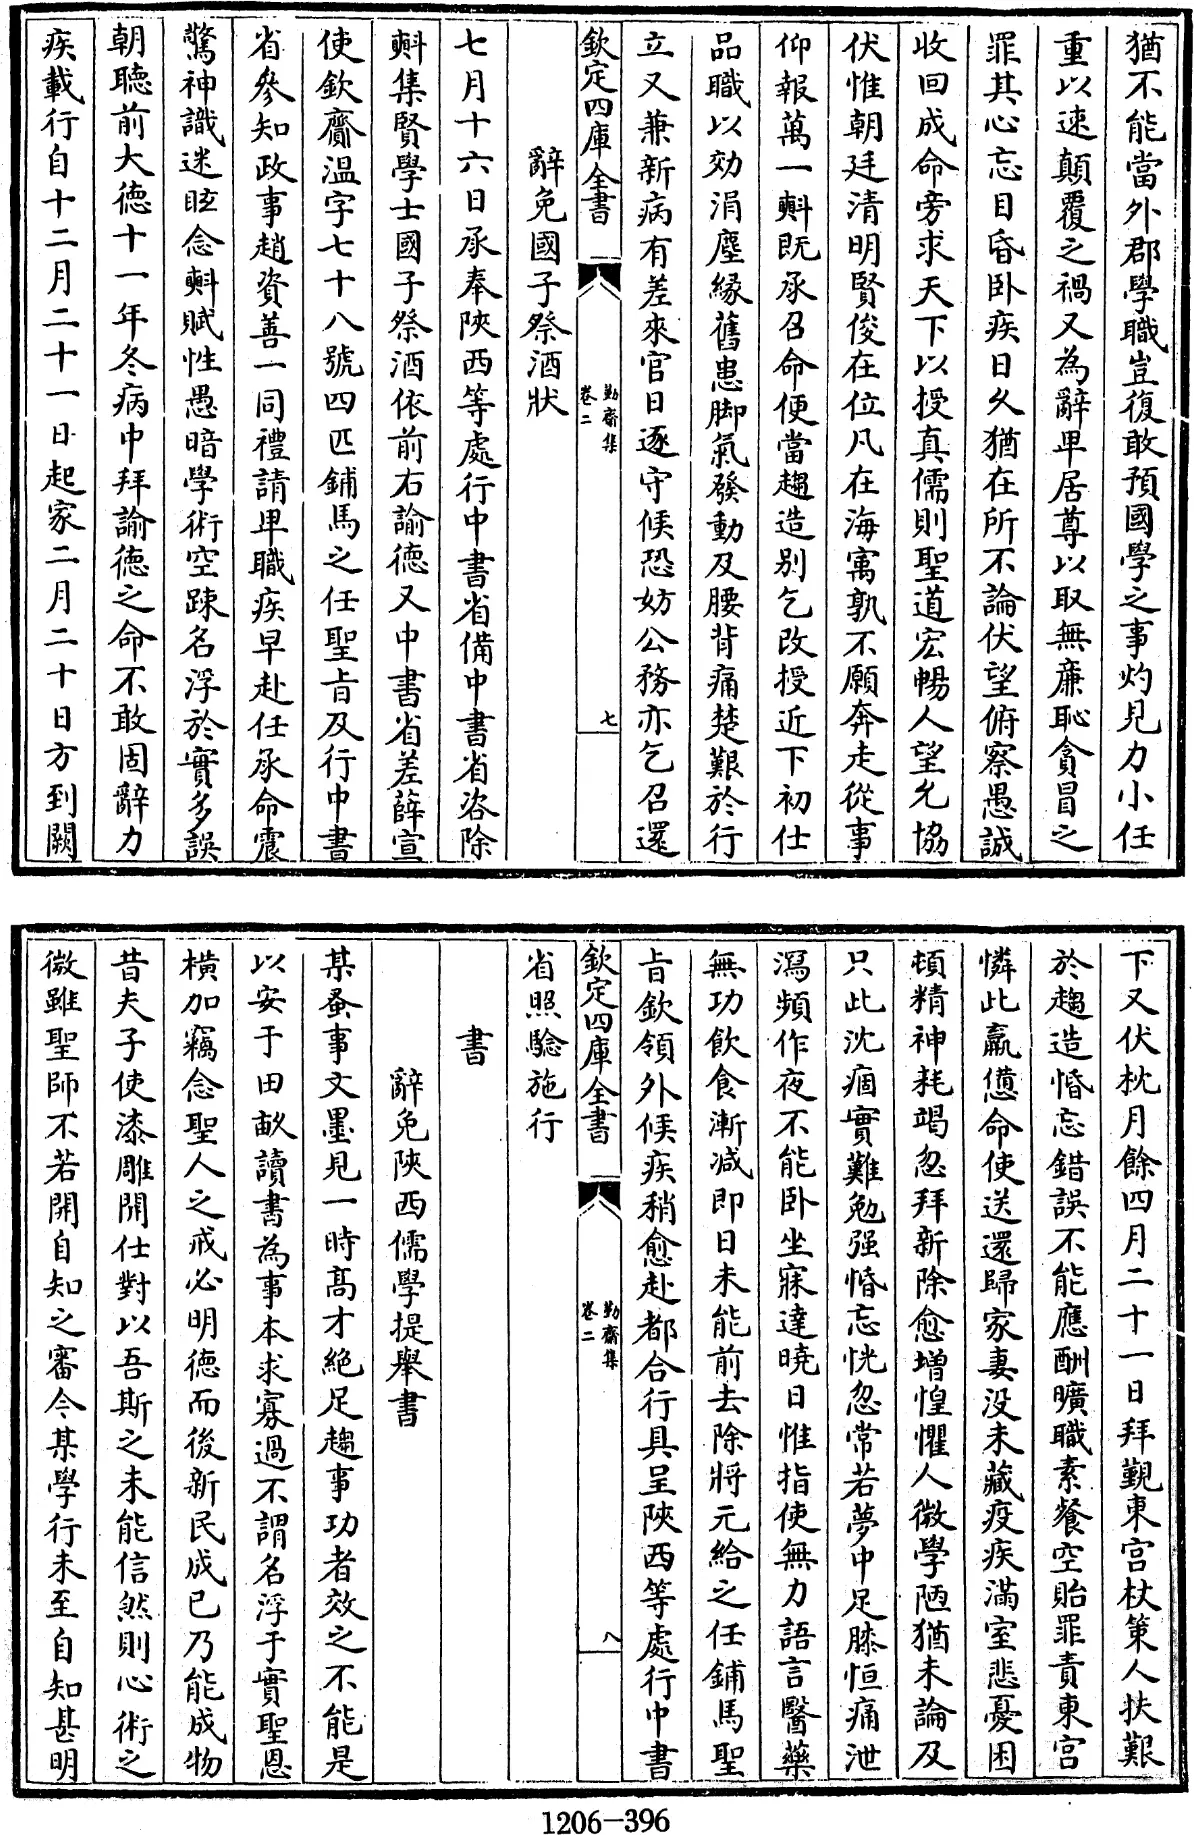 猶不能當外郡學職豈復敢預國學之事灼見力小任
重以速顛覆之禍又為辭卑居尊以取無廉恥貪冒之
罪其心忘目昏卧疾日久猶在所不論伏望俯察愚誠
收回成命旁求天下以授真儒則聖道宏暢人望允協
伏惟朝廷清明賢俊在位凡在海㝢孰不願奔走從事
仰報萬一㪺既承召命便當趨造别乞改授近下初仕
品職以効涓塵緣舊患脚氣發動及腰背痛楚艱於行
立又兼新病有差來官日逐守候恐妨公務亦乞召還
欽定四庫全書
勤齋集
卷二
七
辭免國子祭酒狀
七月十六日承奉陝西等處行中書省備中書省咨除
㪺集賢學士國子祭酒依前右諭德又中書省差薛宣
使欽齎溫字七十八號四匹鋪馬之任聖旨及行中書
省參知政事趙資善一同禮請卑職疾早赴任承命震
驚神識迷眩念㪺賦性愚暗學術空踈名浮於實多誤
朝聽前大德十一年冬病中拜諭德之命不敢固辭力
疾載行自十二月二十一日起家二月二十日方到闕
下又伏枕月餘四月二十一日拜覲東宫杖策人扶艱
於趨造惛忘錯誤不能應酬曠職素餐空貽罪責東宫
憐此羸憊命使送還歸家妻没未藏疫疾滿室悲憂困
頓精神耗竭忽拜新除愈增惶懼人微學陋猶未論及
只此沈痼實難勉强惛忘恍忽常若夢中足膝恒痛泄
瀉頻作夜不能卧坐寐達曉日惟指使無力語言醫藥
無功飲食漸減即日未能前去除將元給之任鋪馬聖
旨欽領外候疾稍愈赴都合行具呈陝西等處行中書
欽定四庫全書
勤齋集
卷二
八
省照驗施行
書
辭免陝西儒學提舉書
某蚤事文墨見一時高才絶足趨事功者效之不能是
以安于田畝讀書為事本求寡過不謂名浮于實聖恩
橫加竊念聖人之戒必明德而後新民成已乃能成物
昔夫子使漆雕開仕對以吾斯之未能信然則心術之
微雖聖師不若開自知之審今某學行未至自知甚明
1206-396